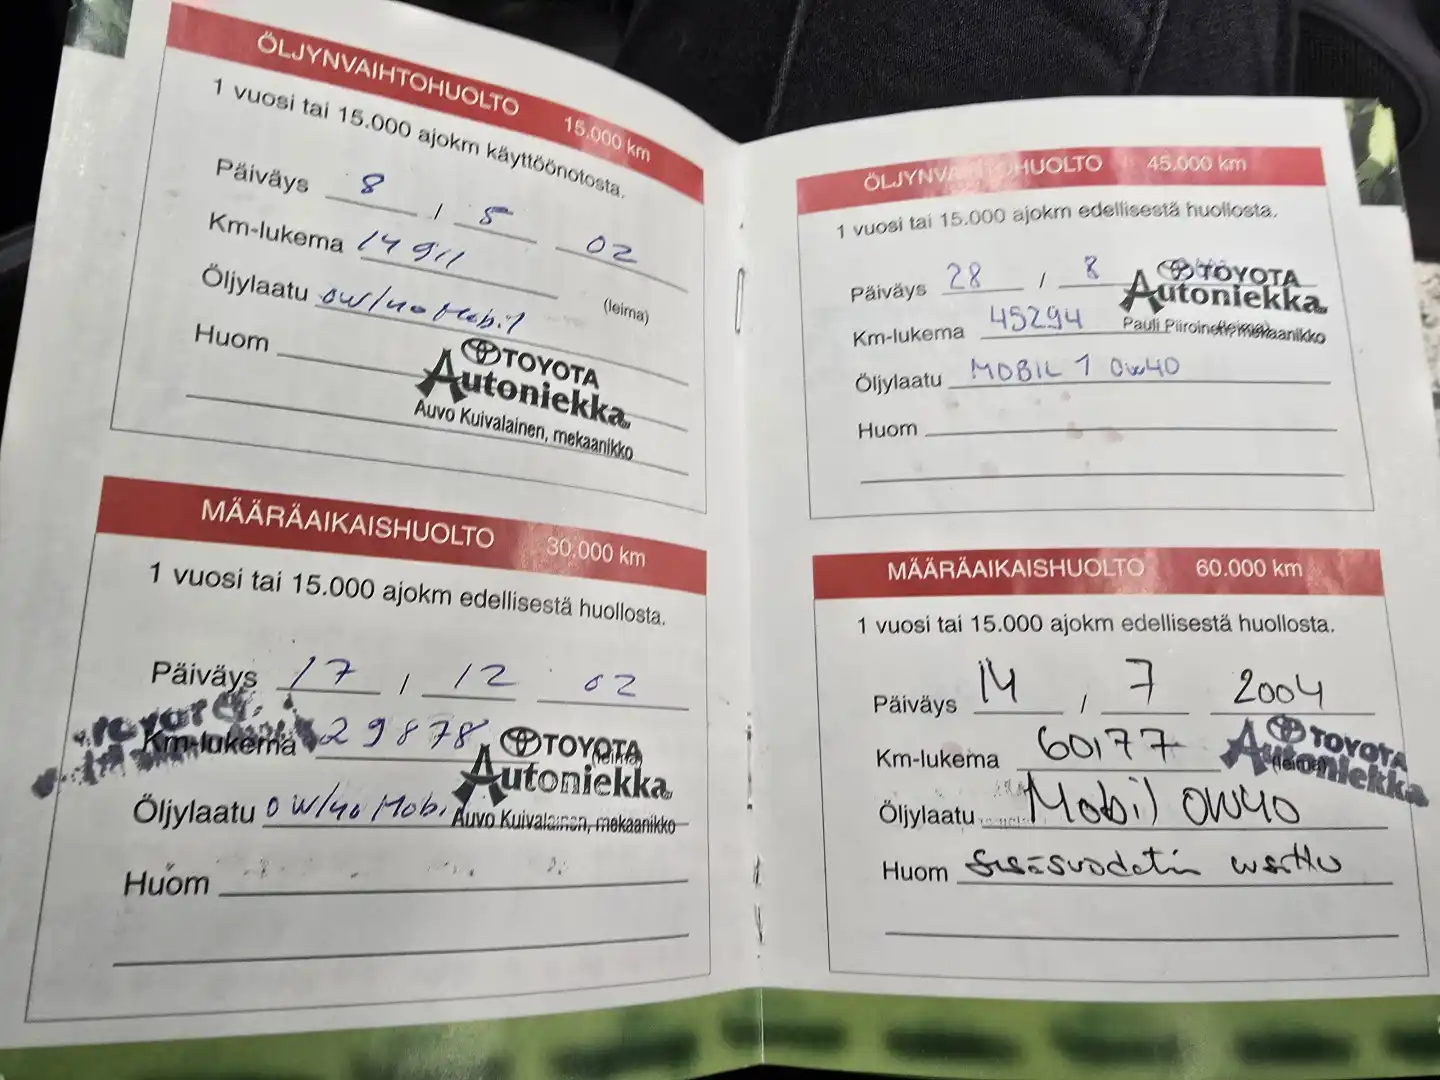 ÖLJYNVAIHTOHUOLTO 15.000 km
1 vuosi tai 15.000 ajokm käyttöönotosta.
Päiväys 8 / 5 02
Km-lukema 14911
(leima)
Öljylaatu 0W/40 Mobil
Huom
TOYOTA
Autoniekka
Auvo Kuivalainen, mekaanikko
MÄÄRÄAIKAISHUOLTO 30.000 km
1 vuosi tai 15.000 ajokm edellisestä huollosta.
Päiväys 17 / 12 02
Km-lukema 29878
TOYOTA
(leima)
Autoniekka
Öljylaatu 0W/40 Mobil
Auvo Kuivalainen, mekaanikko
Huom
ÖLJYNVAIHTOHUOLTO 45.000 km
1 vuosi tai 15.000 ajokm edellisestä huollosta.
Päiväys 28 / 8
TOYOTA
Autoniekka
Km-lukema 45294
Pauli Piiroinen, mekaanikko
(leima)
Öljylaatu MOBIL 1 0W40
Huom
MÄÄRÄAIKAISHUOLTO 60.000 km
1 vuosi tai 15.000 ajokm edellisestä huollosta.
Päiväys 14 / 7 2004
Km-lukema 60177
TOYOTA
(leima)
Autoniekka
Öljylaatu Mobil 0W40
Huom Sisäsuodatin